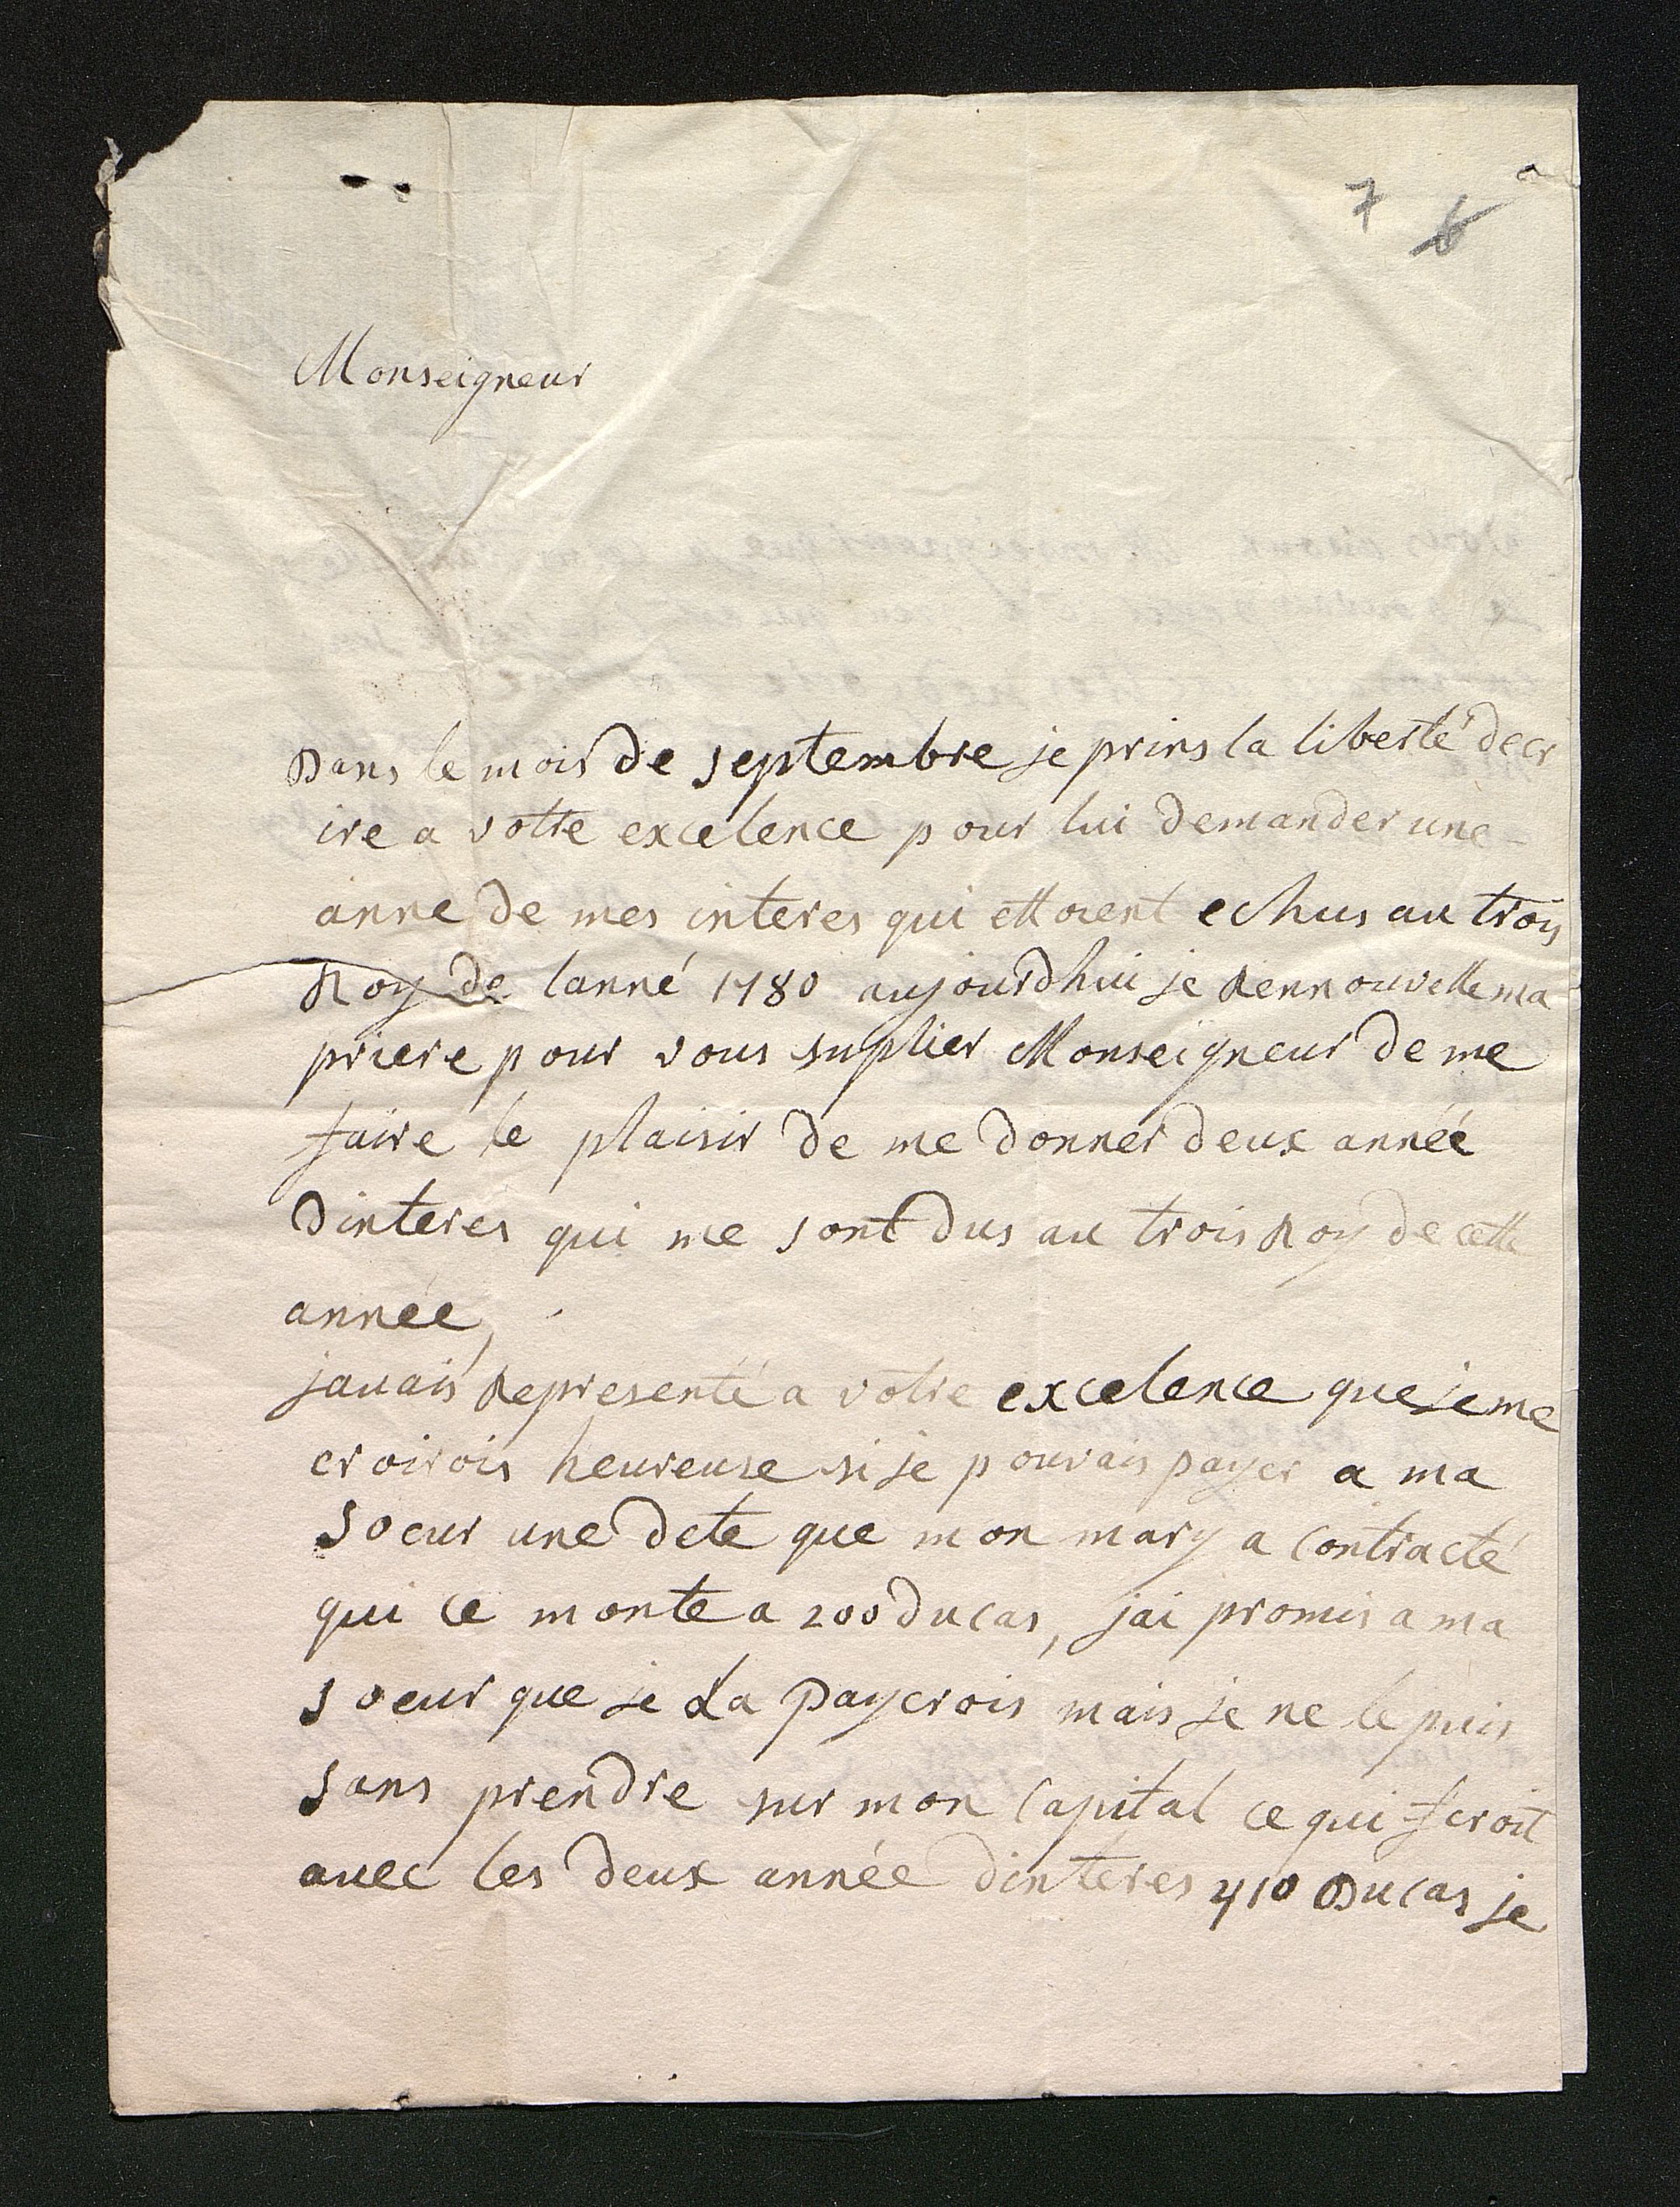 7 6
Monseigneur
Dans le mois de septembre je prins la liberté decr
ire a votre excelence pour lui demander une
anne de mes interes qui ettoient echus au trois
Roy de lanné 1780 aujourdhui je Rennouvelle ma
priere pour vous suplier Monseigneur de me
faire le plaisir de me donner deux année
dinteres qui me sont dus au trois Roy de cette
année,
javais Representé a votre excelence que je me
croirois heureuse si je pouvais payer a ma
soeur une dete que mon mary a contracté
qui ce monte a 200 ducas, jai promis a ma
soeur que je La payerois mais je ne le puis
sans prendre sur mon capital ce qui feroit
avec les deux année dinteres 410 Ducas je